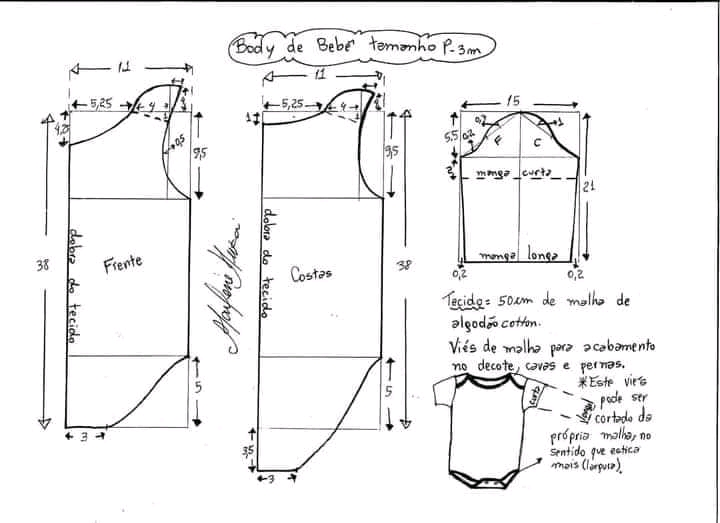 Body de Bebê tamanho P-3m
11
5,25
4
4,25
0,5
9,5
38
dobra do tecido
Frente
5
3
Marlene Mukai
11
5,25
4
1
9,5
38
dobra do tecido
Costas
5
3,5
3
15
5,5
0,2
0,2
F
C
1
2
manga curta
21
manga longa
0,2
0,2
Tecido = 50cm de malha de
algodão cotton.
Viés de malha para acabamento
no decote, cavas e pernas.
*Este viés
pode ser
cortado da
própria malha, no
sentido que estica
mais (largura).
curta
longa